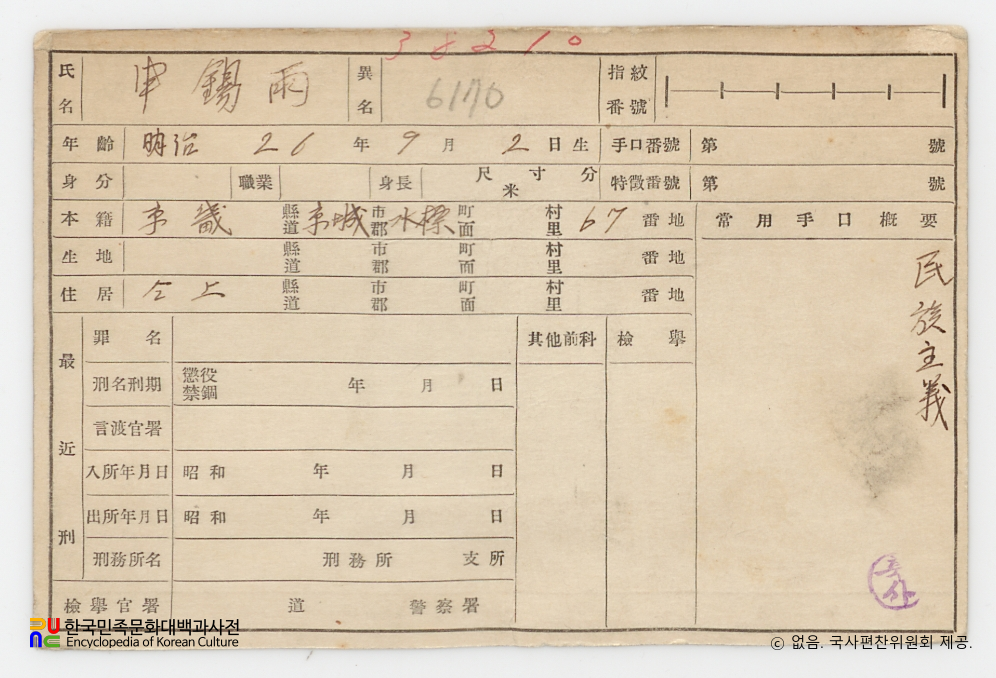 38210
氏名 申錫雨 異名 6170 指紋番號
年齡 明治 26年 9月 2日生 手口番號 第 號
身分 職業 身長 尺寸分 米 特徵番號 第 號
本籍 京畿 縣道 京城 市郡 水標 町面 村里 67 番地 常用手口槪要
生地 縣道 市郡 町面 村里 番地
住居 仝上 縣道 市郡 町面 村里 番地
民族主義
最近刑
罪名 其他前科 檢擧
刑名刑期 懲役 禁錮 年 月 日
言渡官署
入所年月日 昭和 年 月 日
出所年月日 昭和 年 月 日
刑務所名 刑務所 支所
檢擧官署 道 警察署
한국민족문화대백과사전
Encyclopedia of Korean Culture
© 없음. 국사편찬위원회 제공.